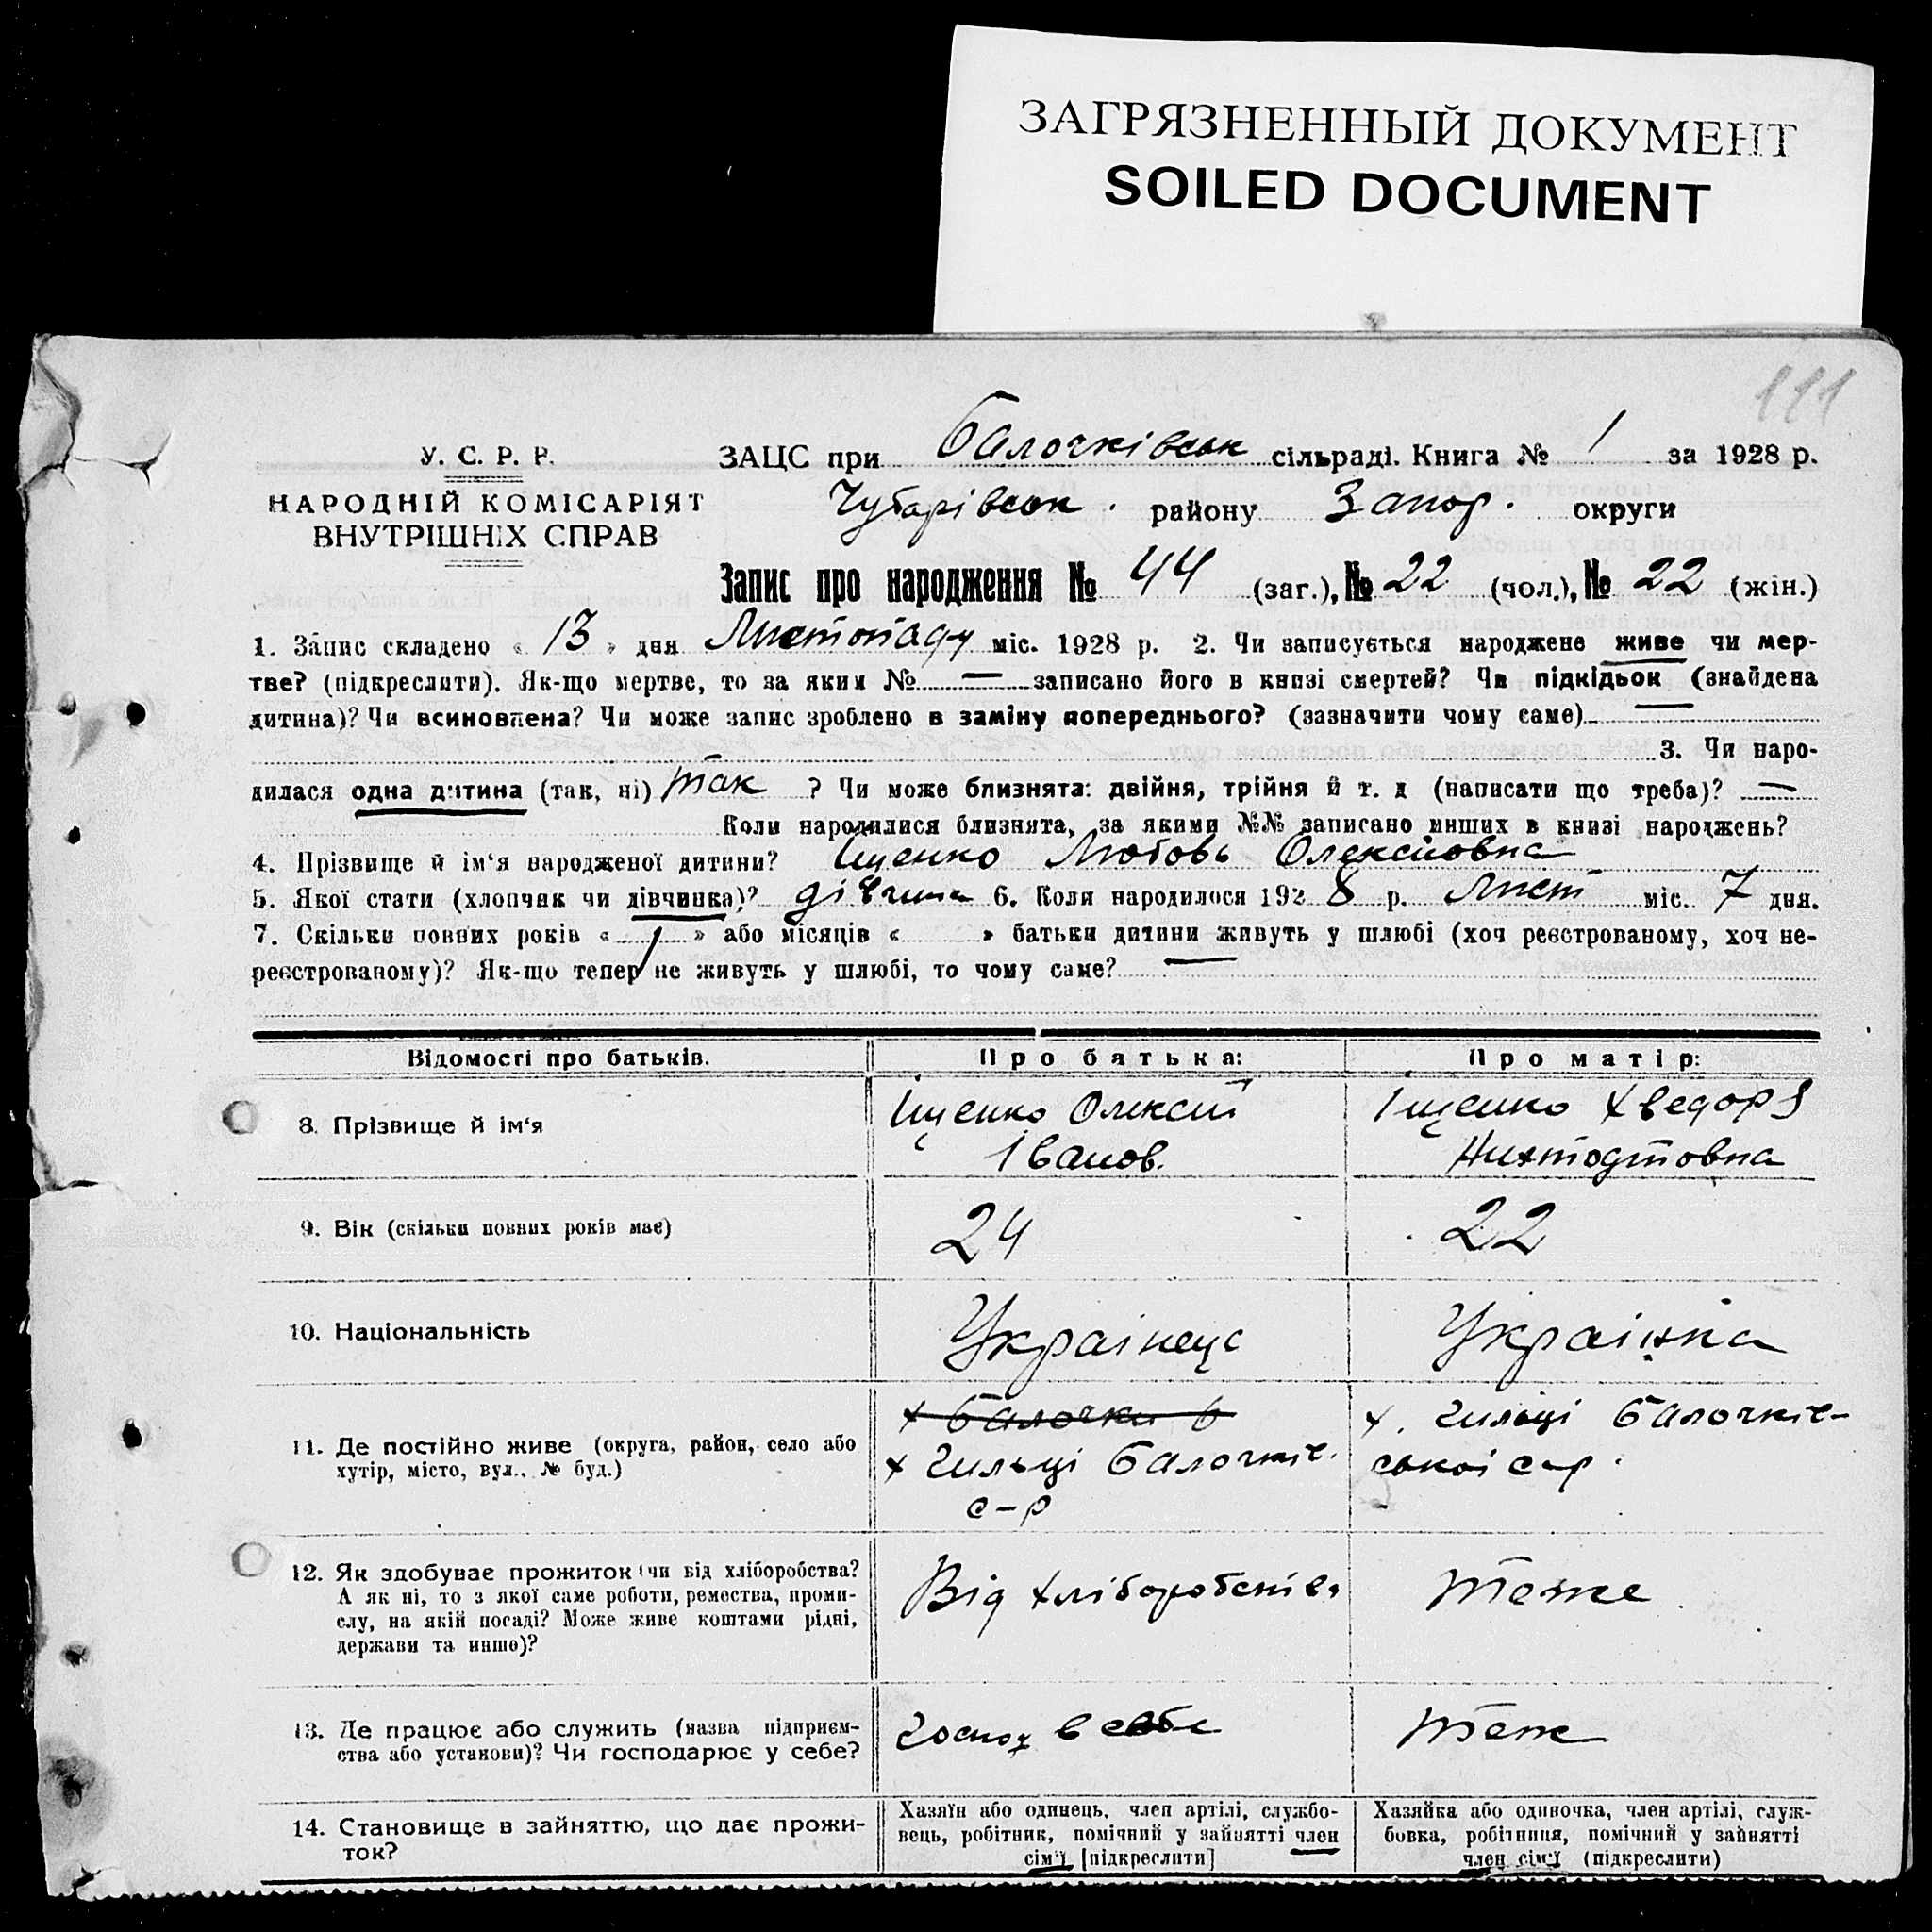 ЗАГРЯЗНЕННЫЙ ДОКУМЕНТ
SOILED DOCUMENT
111
У. С. Р. Р.
НАРОДНІЙ КОМІСАРІЯТ
ВНУТРІШНІХ СПРАВ
ЗАЦС при Балочківськ сільраді. Книга № 1 за 1928 р.
Чубарівськ. району Запор. округи
Запис про народження № 44 (заг.), № 22 (чол.), № 22 (жін.)
1. Запис складено « 13 » дня Листопаду міс. 1928 р. 2. Чи записується народжене живе чи мер-
тве? (підкреслити). Як-що мертве, то за яким № — записано його в книзі смертей? Чи підкідьок (знайдена
дитина)? Чи всиновлена? Чи може запис зроблено в заміну попереднього? (зазначити чому саме) —
3. Чи наро-
дилася одна дитина (так, ні) так ? Чи може близнята: двійня, трійня й т. д (написати що треба)? —
Коли народилися близнята, за якими №№ записано инших в книзі народжень?
4. Прізвище й ім‘я народженої дитини? Іщенко Любовь Олексіовна
5. Якої стати (хлопчик чи дівчинка)? дівчина 6. Коли народилося 1928 р. Лист міс. 7 дня.
7. Скільки повних років « 1 » або місяців « » батьки дитини живуть у шлюбі (хоч реєстрованому, хоч не-
реєстрованому)? Як-що тепер не живуть у шлюбі, то чому саме? —
Відомості про батьків.
Про батька:
Про матір:
8. Прізвище й ім‘я
Іщенко Олексій
Іванов.
Іщенко Хведора
9. Вік (скільки повних років має)
24
22
10. Національність
Українець
Українка
11. Де постійно живе (округа, район, село або
хутір, місто, вул., № буд.)
х Балочки в
х Гильці Балочків.
с-р
х. Гильці Балочків-
ської с-р.
12. Як здобуває прожиток (чи від хліборобства?
А як ні, то з якої саме роботи, ремества, проми-
слу, на якій посаді? Може живе коштами рідні,
держави та инше)?
Від хліборобств.
теже
13. Де працює або служить (назва підприєм-
ства або установи)? Чи господарює у себе?
в себе
теж
14. Становище в зайняттю, що дає прожи-
ток?
Хазяїн або одинець, член артілі, службо-
вець, робітник, помічний у зайнятті член
сім‘ї [підкреслити]
Хазяйка або одиночка, член артілі, служ-
бовка, робітниця, помічний у зайнятті
член сім‘ї (підкреслити)